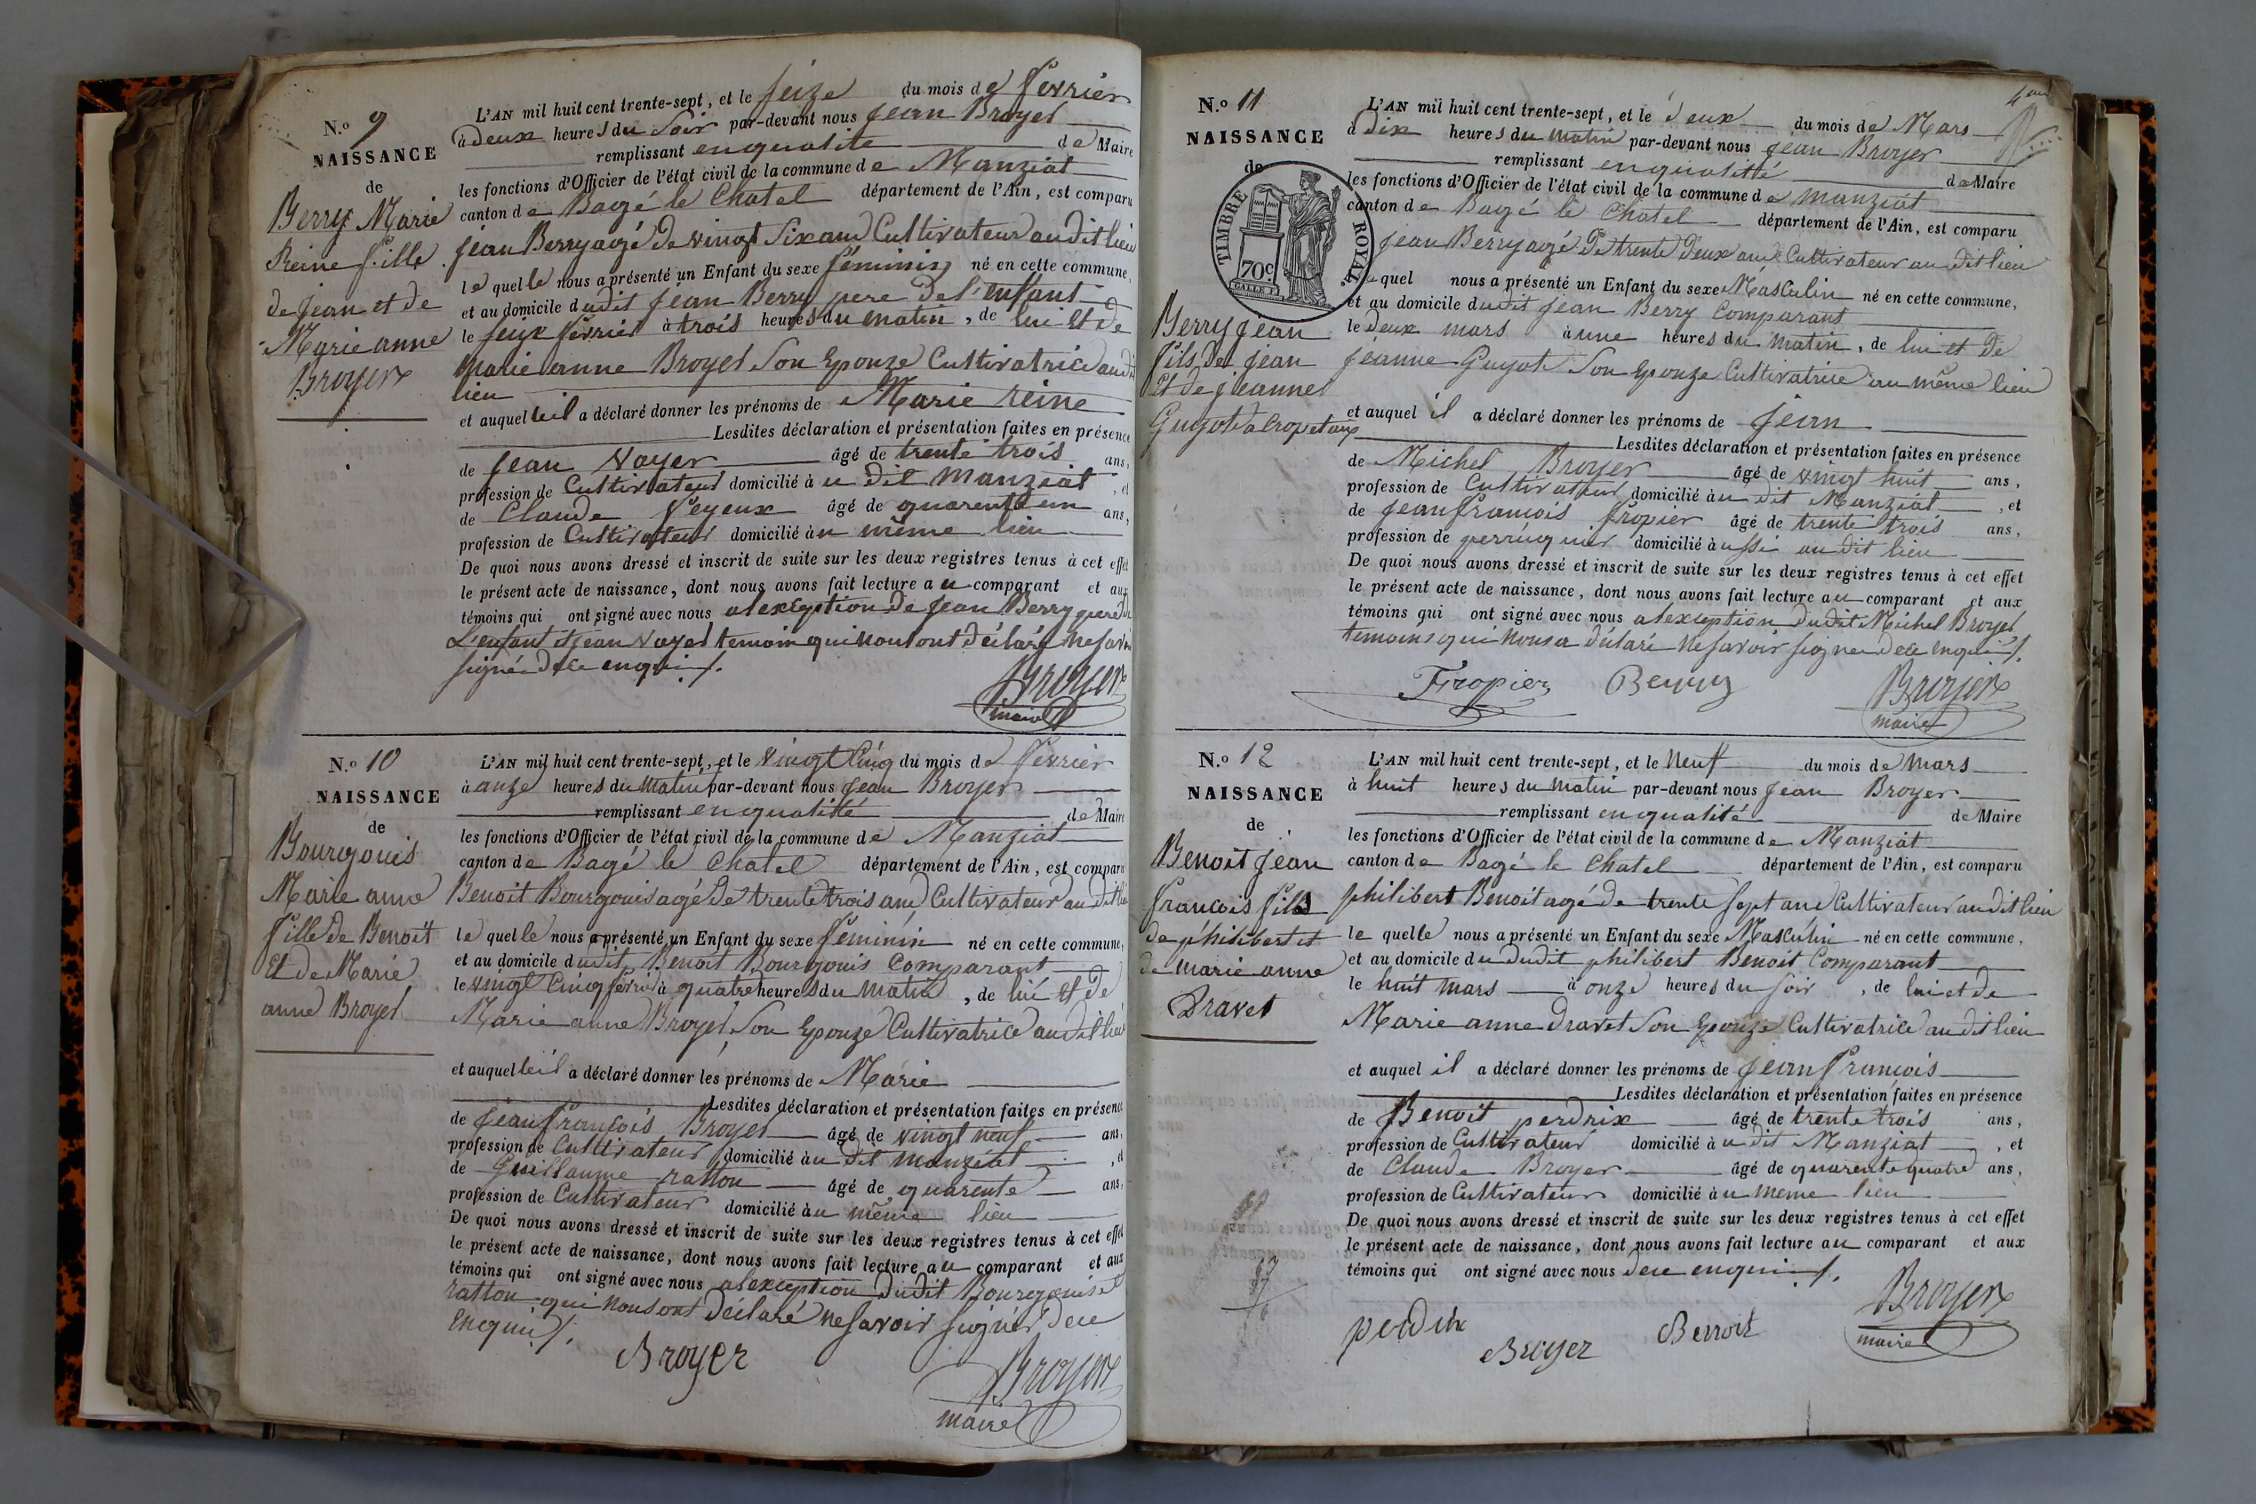 N.o 9
NAISSANCE
de
Berry Marie
Reine fille
de Jean et de
Marie anne
Broyer
L'AN mil huit cent trente-sept, et le seize du mois de fevrier
à deux heures du soir par-devant nous Jean Broyer
remplissant en qualite de Maire
les fonctions d'Officier de l'état civil de la commune de Manziat
canton de Bagé le Chatel département de l'Ain, est comparu
Jean Berry agé de vingt six ans Cultivateur au dit lieu
le quel le nous a présenté un Enfant du sexe féminin né en cette commune,
et au domicile dudit Jean Berry pere de l'enfant
le seize fevrier à trois heures du matin, de lui et de
Marie anne Broyer son Epouze Cultivatrice au dit
lieu
et auquel il a déclaré donner les prénoms de Marie reine
Lesdites déclaration et présentation faites en présence
de Jean Voyer âgé de trente trois ans,
profession de Cultivateur domicilié à u dit Manziat, et
de Claude Feyeux âgé de quarente un ans,
profession de Cultivateur domicilié à u même lieu
De quoi nous avons dressé et inscrit de suite sur les deux registres tenus à cet effet
le présent acte de naissance, dont nous avons fait lecture au comparant et aux
témoins qui ont signé avec nous a lexception de Jean Berry pere de
L'enfant et Jean Voyer temoin qui nous ont déclaré ne savoir
signé de ce enquis.
Broyer
maire
N.o 10
NAISSANCE
de
Bourgouis
Marie anne
fille de Benoit
Et de Marie
anne Broyer
L'AN mil huit cent trente-sept, et le vingt Cinq du mois de fevrier
à onze heures du matin par-devant nous Jean Broyer
remplissant en qualité de Maire
les fonctions d'Officier de l'état civil de la commune de Manziat
canton de Bagé le Chatel département de l'Ain, est comparu
Benoit Bourgouis agé de trente trois ans Cultivateur au dit lieu
le quel le nous a présenté un Enfant du sexe féminin né en cette commune,
et au domicile dudit Benoit Bourgouis Comparant
le vingt Cinq fevrier à quatre heures du matin, de lui et de
Marie anne Broyer son Epouze Cultivatrice au dit lieu
et auquel il a déclaré donner les prénoms de Marie
Lesdites déclaration et présentation faites en présence
de Jean françois Broyer âgé de vingt neuf ans,
profession de Cultivateur domicilié à u dit Manziat, et
de Guillaume ratton âgé de quarente ans,
profession de Cultivateur domicilié à u même lieu
De quoi nous avons dressé et inscrit de suite sur les deux registres tenus à cet effet
le présent acte de naissance, dont nous avons fait lecture au comparant et aux
témoins qui ont signé avec nous a lexception dudit Bourgouis et
ratton qui nous ont déclaré ne savoir signer de ce
enquis.
Broyer
Broyer
maire
N.o 11
NAISSANCE
de
TIMBRE ROYAL
70c
Berry Jean
fils de Jean
Et de Jeanne
Guyot
L'AN mil huit cent trente-sept, et le deux du mois de Mars
à dix heures du matin par-devant nous Jean Broyer
remplissant en qualitté de Maire
les fonctions d'Officier de l'état civil de la commune de manziat
canton de Bagé le Chatel département de l'Ain, est comparu
Jean Berry agé de trente deux ans Cultivateur au dit lieu
le quel nous a présenté un Enfant du sexe Masculin né en cette commune,
et au domicile dudit Jean Berry Comparant
le deux mars à une heures du matin, de lui et de
Jeanne Guyot son Epouze Cultivatrice au même lieu
et auquel il a déclaré donner les prénoms de Jean
Lesdites déclaration et présentation faites en présence
de Michel Broyer âgé de vingt huit ans,
profession de Cultivateur domicilié à u dit Manziat, et
de Jean francois fropier âgé de trente trois ans,
profession de perruquier domicilié à ussi au dit lieu
De quoi nous avons dressé et inscrit de suite sur les deux registres tenus à cet effet
le présent acte de naissance, dont nous avons fait lecture au comparant et aux
témoins qui ont signé avec nous a lexception dudit Michel Broyer
temoins qui nous a déclaré ne savoir signer de ce enquis.
Fropier Berry Broyer
maire
N.o 12
NAISSANCE
de
Benoit Jean
francois fils
de philibert et
de marie anne
Dravet
L'AN mil huit cent trente-sept, et le neuf du mois de mars
à huit heures du matin par-devant nous Jean Broyer
remplissant en qualité de Maire
les fonctions d'Officier de l'état civil de la commune de Manziat
canton de Bagé le Chatel département de l'Ain, est comparu
philibert Benoit agé de trente sept ans Cultivateur au dit lieu
le quelle nous a présenté un Enfant du sexe Masculin né en cette commune,
et au domicile du dudit philibert Benoit Comparant
le huit mars à onze heures du soir, de lui et de
Marie anne Dravet son Epouze Cultivatrice au dit lieu
et auquel il a déclaré donner les prénoms de Jean françois
Lesdites déclaration et présentation faites en présence
de Benoit perdrix âgé de trente trois ans,
profession de Cultivateur domicilié à u dit Manziat, et
de Claude Broyer âgé de quarente quatre ans,
profession de Cultivateur domicilié à u meme lieu
De quoi nous avons dressé et inscrit de suite sur les deux registres tenus à cet effet
le présent acte de naissance, dont nous avons fait lecture au comparant et aux
témoins qui ont signé avec nous de ce enquis.
perdrix Broyer Benoit Broyer
maire